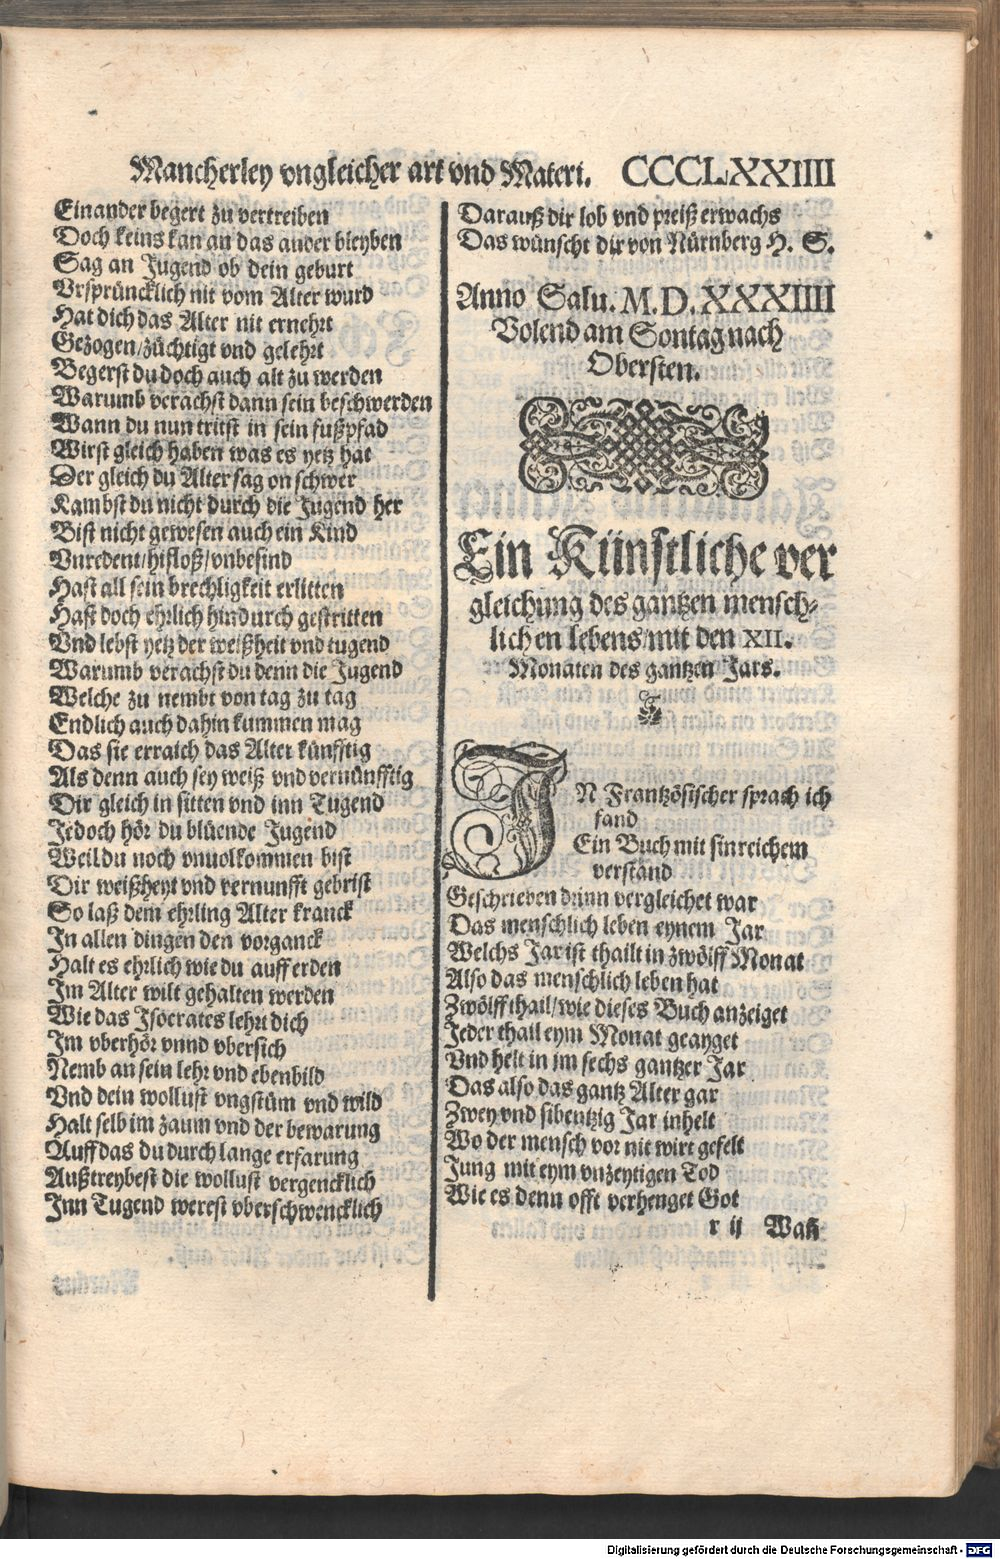 Mancherley vngleicher art vnd Materi. CCCLXXIIII
Einander begert zu vertreiben
Doch keins kan an das ander bleyben
Sag an Jugend ob dein geburt
Vrsprüncklich nit vom Alter wurd
Hat dich das Alter nit ernehrt
Gezogen/züchtigt vnd gelehrt
Begerst du doch auch alt zu werden
Warumb verachst dann sein beschwerden
Wann du nun tritst in sein fußpfad
Wirst gleich haben was es yetz hat
Der gleich du Alter sag on schwer
Kambst du nicht durch die Jugend her
Bist nicht gewesen auch ein Kind
Vnredent/hifloß/vnbesind
Hast all sein brechligkeit erlitten
Hast doch ehrlich hindurch gestritten
Vnd lebst yetz der weißheit vnd tugend
Warumb verachst du denn die Jugend
Welche zu nembt von tag zu tag
Endlich auch dahin kummen mag
Das sie erraich das Alter künfftig
Als denn auch sey weiß vnd vernünfftig
Dir gleich in sitten vnd inn Tugend
Jedoch hör du blüende Jugend
Weil du noch vnuolkommen bist
Dir weißheyt vnd vernunfft gebrist
So laß dem ehrling Alter kranck
In allen dingen den vorganck
Halt es ehrlich wie du auff erden
Im Alter wilt gehalten werden
Wie das Isocrates lehrt dich
Im vberhör vnnd vbersich
Nemb an sein lehr vnd ebenbild
Vnd dein wollust vngstüm vnd wild
Halt selb im zaum vnd der bewarung
Auff das du durch lange erfarung
Außtreybest die wollust vergencklich
Inn Tugend werest vberschwencklich
Darauß dir lob vnd preiß erwachs
Das wünscht dir von Nürnberg H. S.
Anno Salu. M. D. XXXIIII
Volend am Sontag nach
Obersten.
Ein Künstliche ver
gleichung des gantzen mensch-
lichen lebens/mit den XII.
Monaten des gantzen Jars.
IN Frantzösischer sprach ich
fand
Ein Buch mit sinreichem
verstand
Geschrieben drinn vergleichet war
Das menschlich leben eynem Jar
Welchs Jar ist thailt in zwölff Monat
Also das menschlich leben hat
Zwölff thail/wie dieses Buch anzeiget
Jeder thail eym Monat geayget
Vnd helt in im sechs gantzer Jar
Das also das gantz Alter gar
Zwey vnd sibentzig Jar inhelt
Wo der mensch vor nit wirt gefelt
Jung mit eym vnzeytigen Tod
Wie es denn offt verhenget Got
r ij Waß
Digitalisierung gefördert durch die Deutsche Forschungsgemeinschaft - DFG